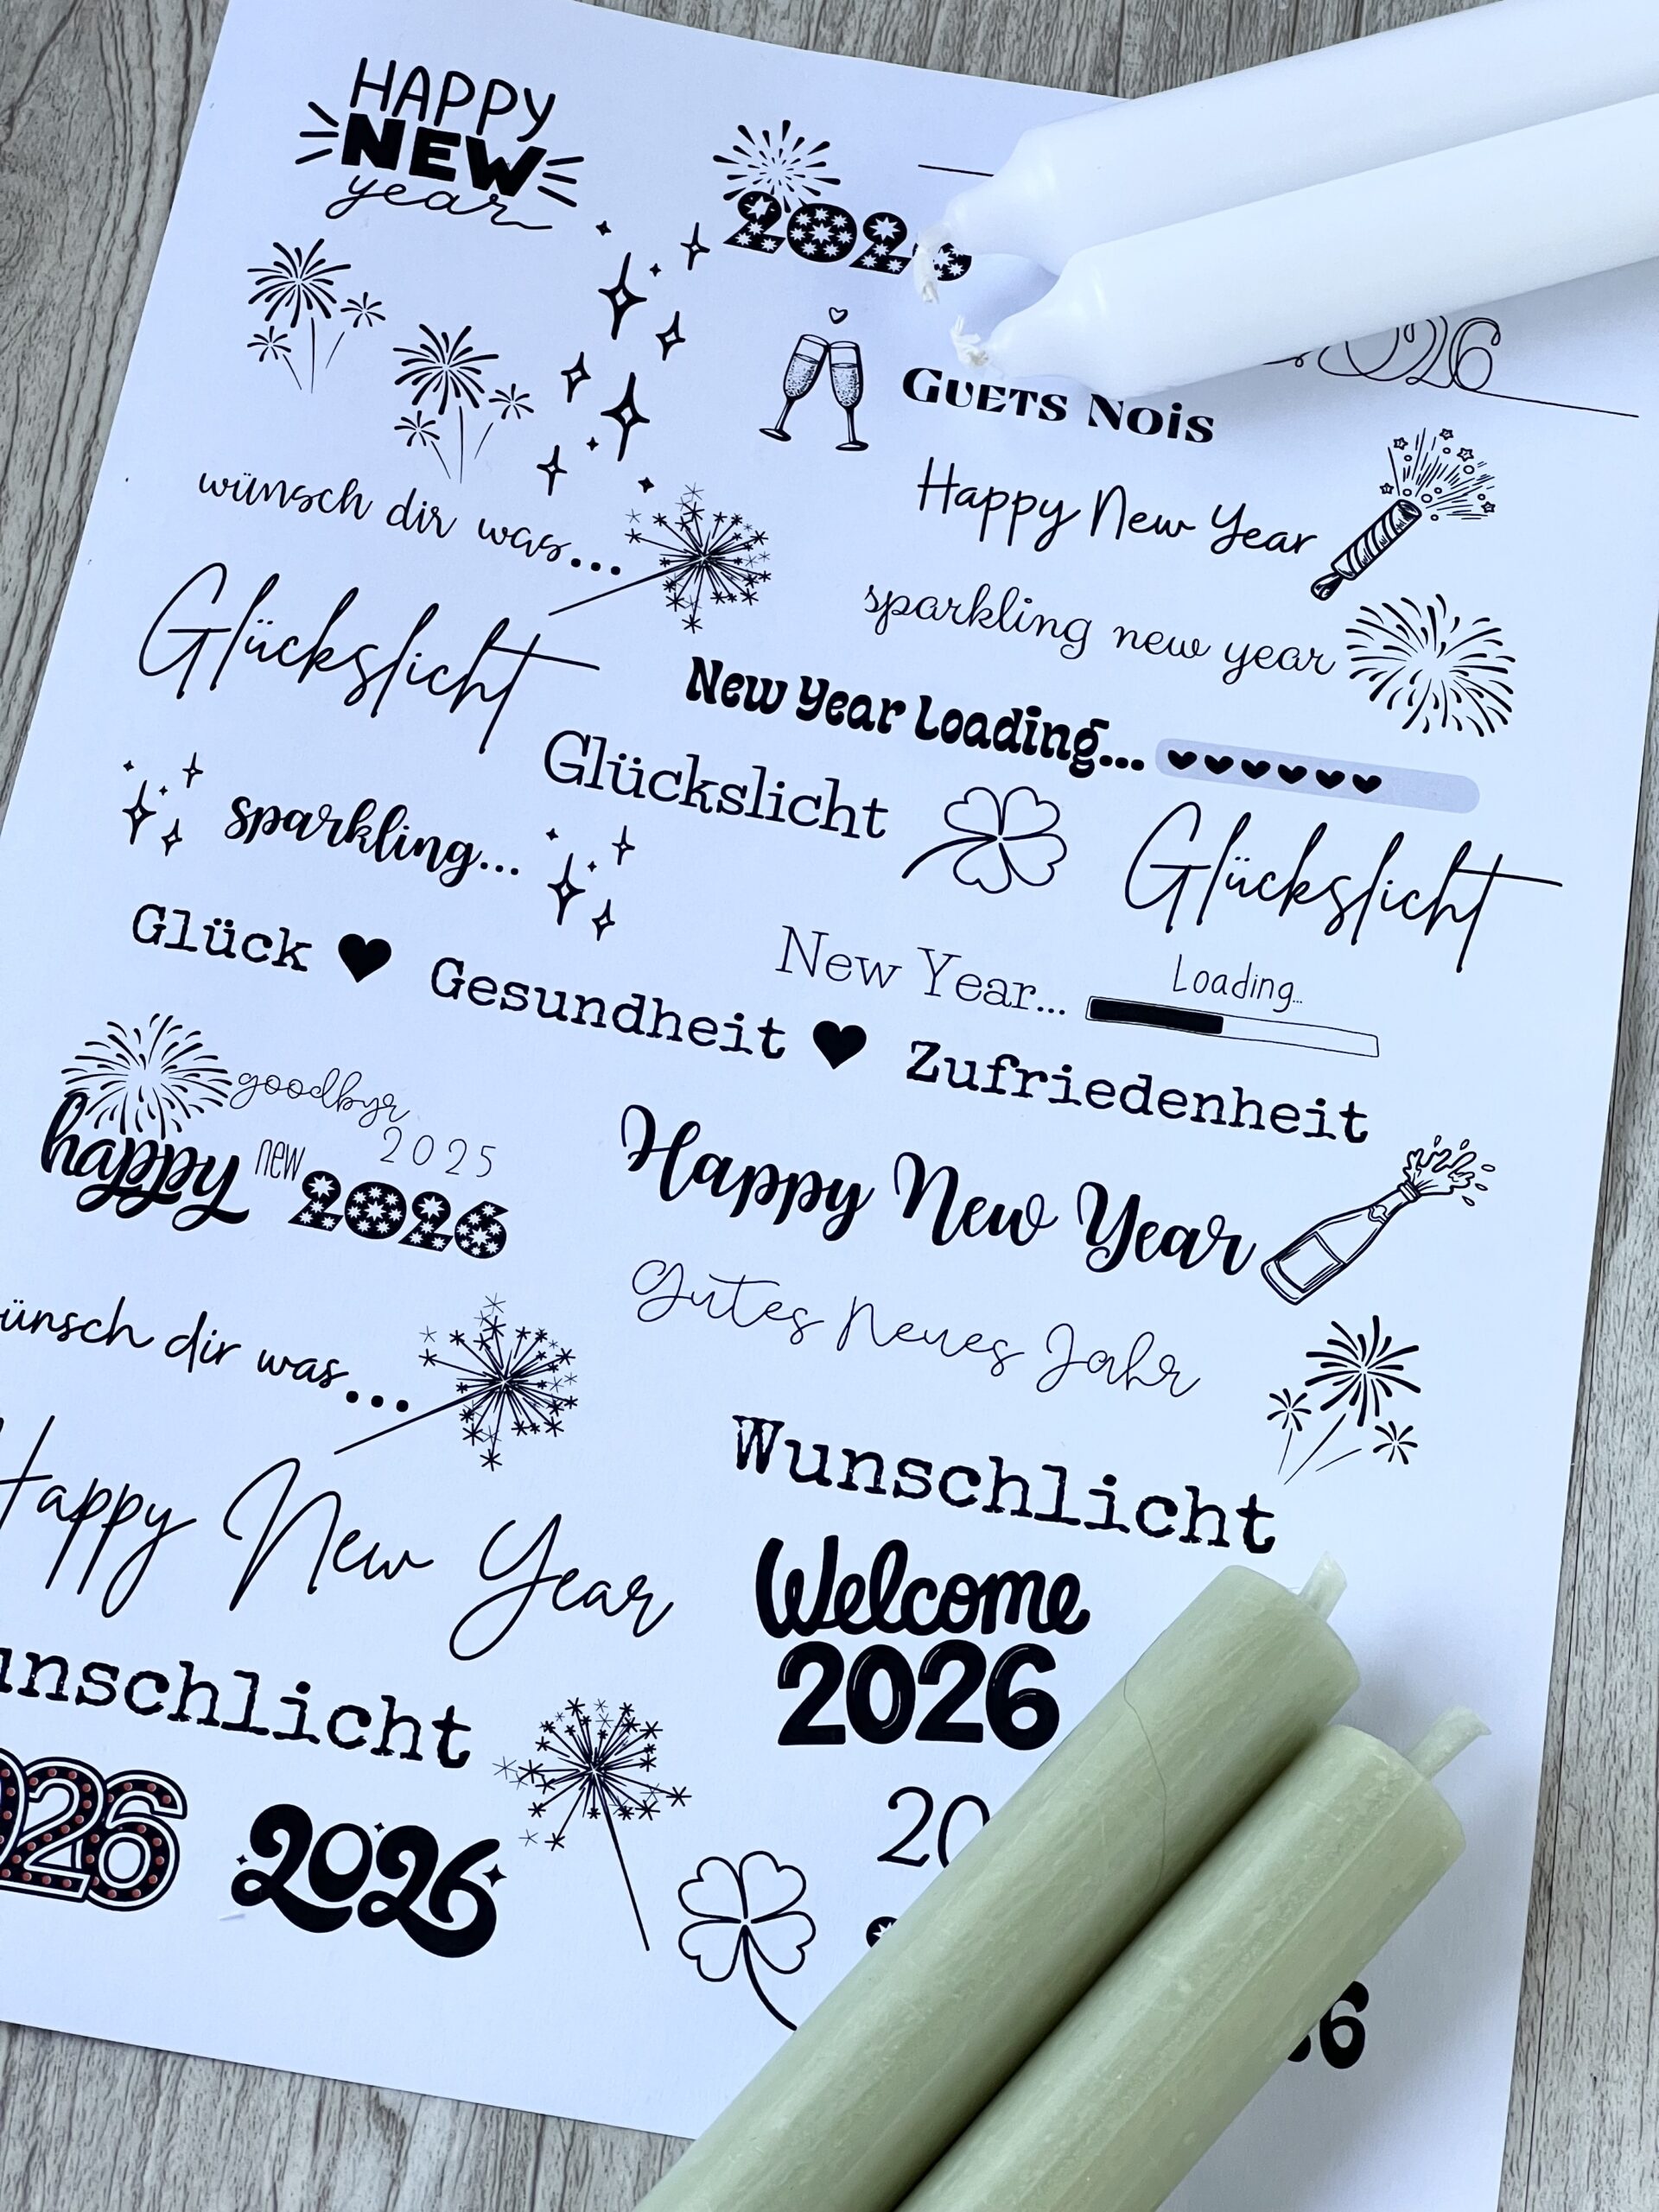 HAPPY
NEW
year
2026
2026
GUETS NOiS
wünsch dir was...
Happy New Year
sparkling new year
Glückslicht
New Year Loading...
Glückslicht
sparkling...
Glückslicht
Glück ♥ Gesundheit ♥ Zufriedenheit
New Year... Loading...
goodbye
2025
happy new 2026
Happy New Year
Gutes Neues Jahr
ünsch dir was...
Wunschlicht
Happy New Year
Welcome
2026
unschlicht
026
2026
20
26